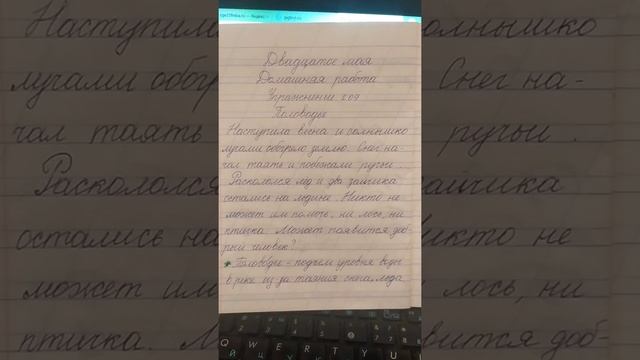 Двадцатое мая
Домашняя работа
Упражнение 209
Половодье
Наступила весна и солнышко
лучами обогрело землю. Снег на-
чал таять и побежали ручьи.
Раскололся лёд и два зайчика
остались на льдине. Никто не
может им помочь, ни лось, ни
птичка. Может появится доб-
рый человек?
* Половодье - подъем уровня воды
в реке из за таяния снега, льда